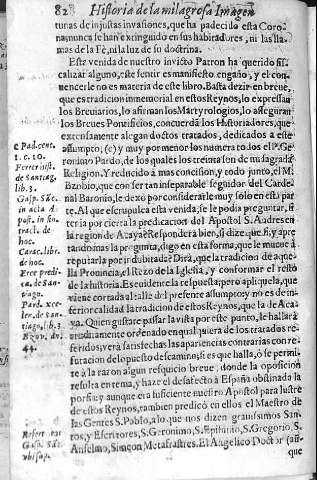 82 Historia de la milagrosa Imagen
turas de injustas invasiones, que ha padecido esta Coro-
na, nunca le han extinguido en sus habitadores, ni las lla-
mas de la Fè, ni la luz de su doctrina.
Esta venida de nuestro invicto Patron ha querido fis-
calizar alguno, este sentir es manifiesto engaño, y el con-
vencerle no es materia de este libro. Basta dezir en breve,
que es tradicion inmemorial en estos Reynos, lo expressan
los Breviarios, lo afirman los Martyrologios, lo asseguran
los Breves Pontificios, concuerda los Historiadores, que
extensamente alegan doctos tratados, dedicados a este
assumpto, (c) y muy por menor los numero todos el P. Ge-
ronimo Pardo, de los quales los treinta son de mi sagrada
Religion. Y reducido à mas concision, y todo junto, el M.
Bzobio, que con ser tan inseparable seguidor del Carde-
nal Baronio, le dexò por considerarle muy solo en esta par-
te. Al que escrupuliza esta venida, se le podia preguntar, si
tiene por cierta la predicacion del Apostol S. Andres en
la region de Acaya? Responderà bien, si dize que si, y apre-
tandonos la pregunta, digo en esta forma, que le mueve à
reputarla por indubitada? Dirà, que la tradicion de aque-
lla Provincia, el Rezo de la Iglesia, y conformar el resto
de la historia. Es evidente la respuesta; pero apliquela, que
viene cortada al talle del presente assumpto, y no es de in-
ferior calidad la tradicion de estos Reynos, que la de Aca-
ya. Quien gustare passar la vista por este punto, le hallarà
eruditamente ordenado en qualquiera de los tratados re-
feridos, y verà satisfechas las apariencias contrarias con re-
futacion de lo puesto de camino, si es que halla, ò se permi-
te à la razon algun resquicio breve, donde la oposicion
resulta en tema, y haze el desafecto à España obstinada la
porfia; y aunque era suficiente nuestro Apostol para lustre
de estos Reynos, tambien predicò en ellos el Maestro de
las Gentes S. Pablo, a lo que nos dizen gravissimos San-
tos, y Escritores, S. Geronimo, S. Epifanio, S. Gregorio, S.
Anselmo, Simeon Metafrastres. El Angelico Doctor (aun-
que
c Pad. cent.
1. c. 10.
Ferrer hist.
de Santiag.
lib. 3.
Gasp. Sãc.
in acta A-
post. in fin
tract. de
hoc.
Carac. lib.
de hoc.
Erce predi-
ca. de San-
tiago.
Pard. exce-
ler. de San-
tiago, lib. 3.
Bzov. ann.
44.
Refert eos
Gasp. Sãc.
ubi sup.